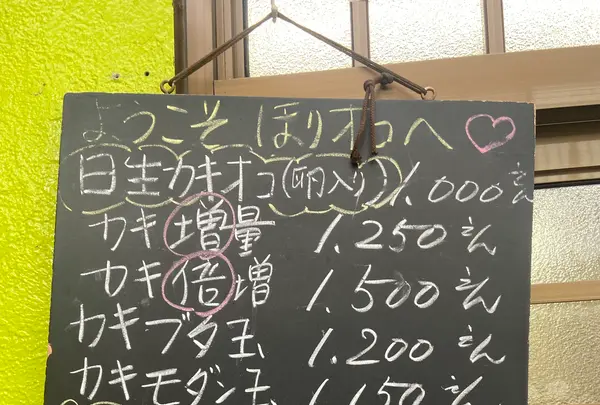 ようこそ ほりオコへ♡
日生カキオコ(卵入り) 1.000えん
カキ増量 1.250えん
カキ倍増 1.500えん
カキブタ玉 1.200えん
カキモダン玉 1.150えん